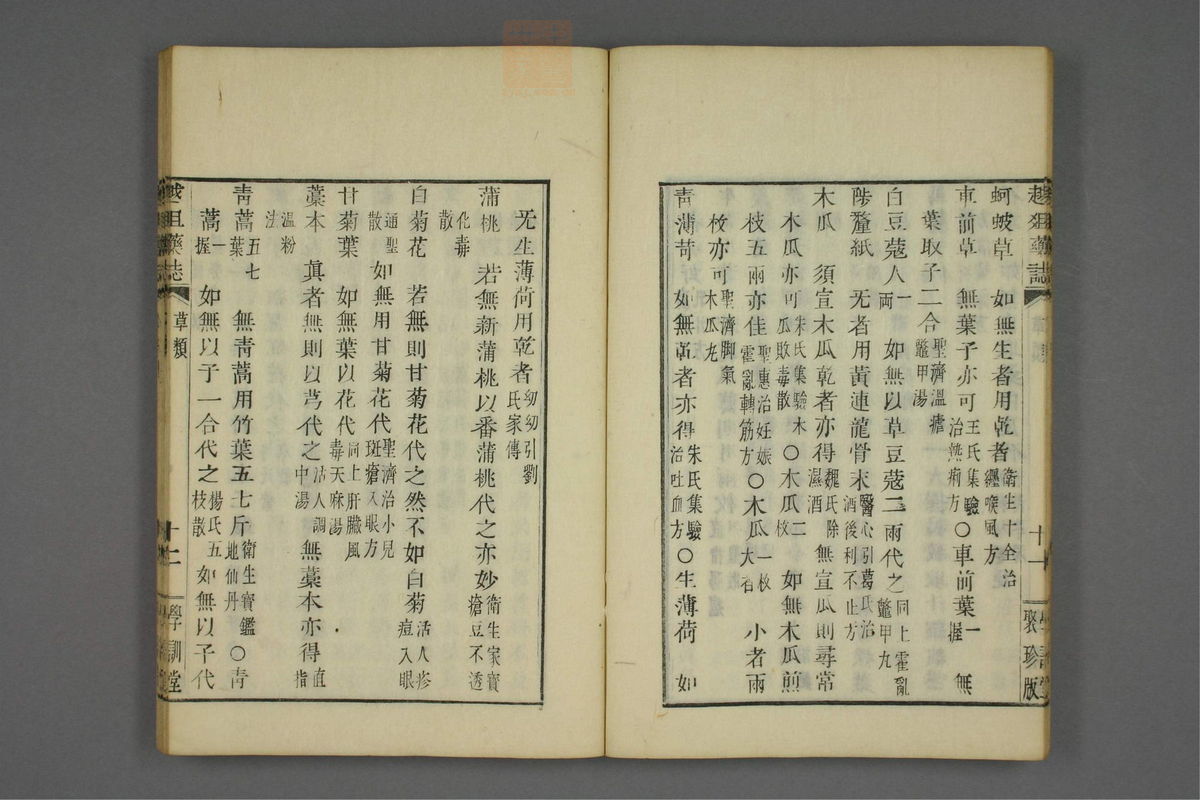 蚵蚾草 如無生者用乾者衛生十全治纏喉風方
車前草 無葉子亦可王氏集驗治熱痢方〇車前葉一握 無
葉取子二合聖濟溫瘧鼈甲湯
白豆蔻人一兩 如無以草豆蔻二兩代之同上霍亂鼈甲丸
陟釐紙 无者用黃連龍骨末醫心引葛氏治酒後利不止方
木瓜 須宣木瓜乾者亦得魏氏除濕酒 無宣瓜則尋常
木瓜亦可朱氏集驗木瓜敗毒散〇木瓜二枚 如無木瓜煎
枝五兩亦佳聖惠治妊娠霍亂轉筋方〇木瓜大者一枚 小者兩
枚亦可聖濟脚氣木瓜丸
青薄苛 如無者亦得朱氏集驗治吐血方〇生薄荷 如
藥誌 十一 學訓堂聚珍版
无生薄荷用乾者幼幼引劉氏家傳
蒲桃 若無新蒲桃以番蒲桃代之亦妙衛生家寶瘡豆不透
化毒散
白菊花 若無則甘菊花代之然不如白菊活人疹痘入眼
通聖散 如無用甘菊花代聖濟治小兒斑瘡入眼方
甘菊葉 如無葉以花代同上肝臟風毒天麻湯
藁本 眞者無則以芎代之活人調中湯 無藁本亦得直指
溫粉法
青蒿葉五七 無青蒿用竹葉五七斤衛生寶鑑地仙丹〇青
蒿一握 如無以子一合代之楊氏五枝散如無以子代
藥誌 草類 十二 學訓堂